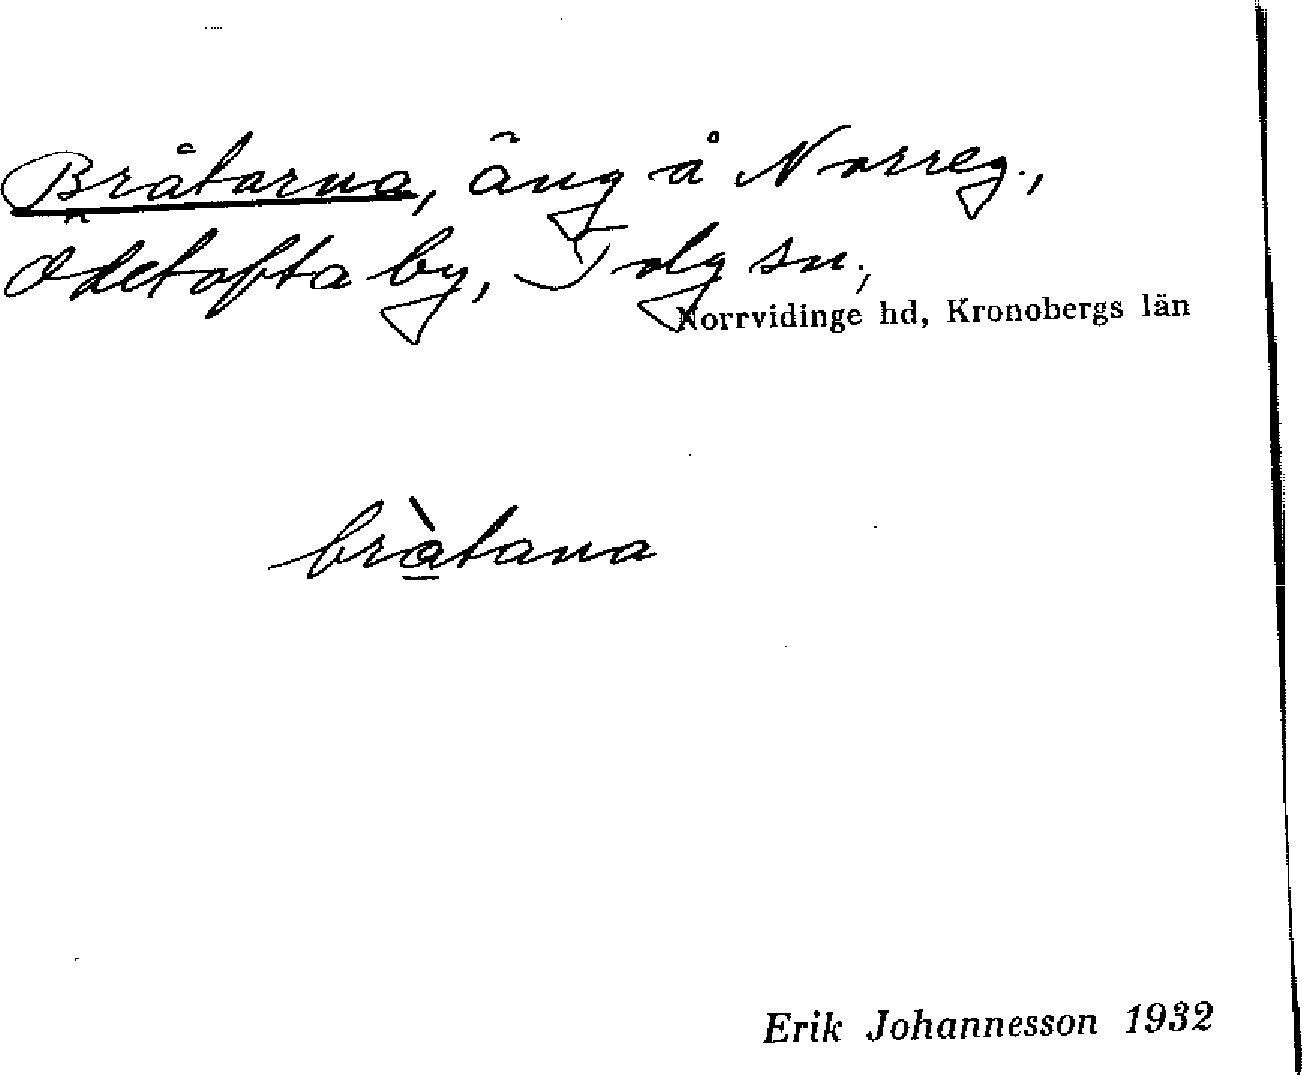 Bråtarna, äng å Norreg.,
Ödetofta by, Tolg sn,
Norrvidinge hd, Kronobergs län
bràtana
Erik Johannesson 1932